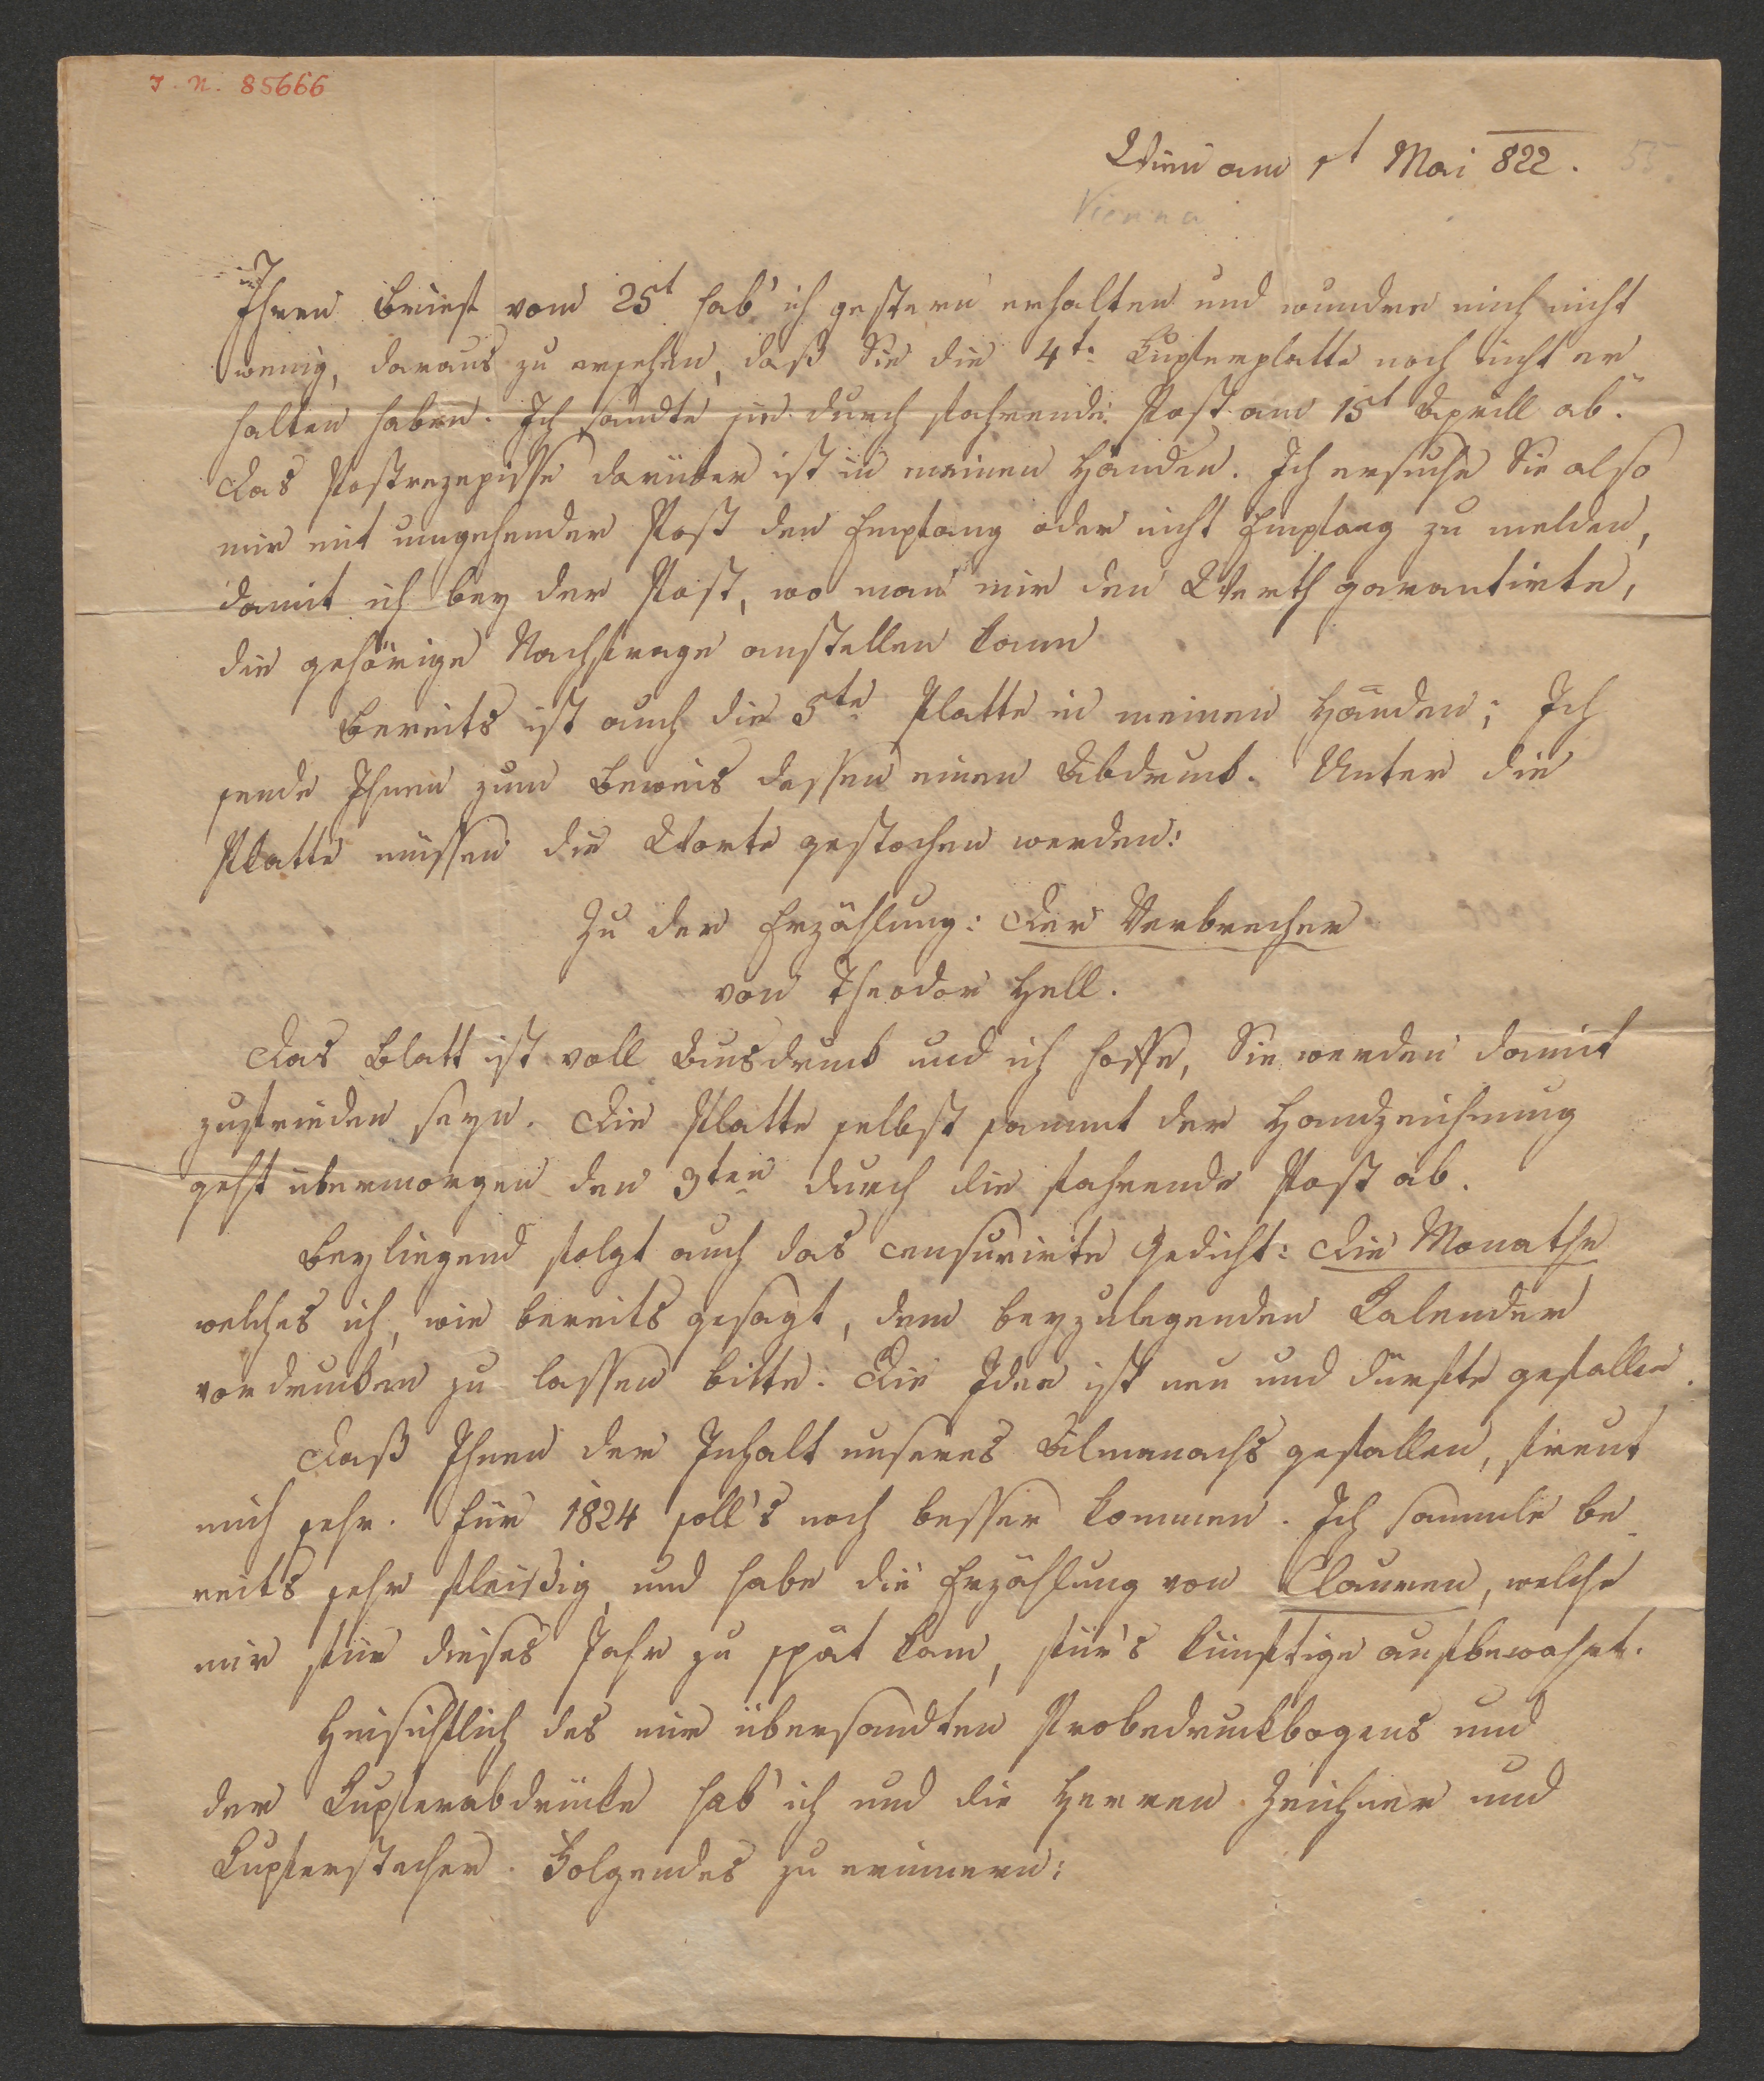 I. N. 85666
Wien am 1t Mai 822.
55.
Vienna
Ihren Brief vom 25t hab' ich gestern erhalten und wundre mich nicht
wenig, daraus zu ersehen, daß Sie die 4te Kupferplatte noch nicht er¬
halten haben. Ich sandte sie durch fahrende Post am 15t Aprill ab.
Das Postrezepisse darüber ist in meinen Händen. Ich ersuche Sie also
mir mit umgehender Post den Empfang oder nicht Empfang zu melden,
damit ich bey der Post, wo man mir den Werth garantirte,
die gehörige Nachfrage anstellen kann
Bereits ist auch die 5te Platte in meinen Händen; Ich
sende Ihnen zum Beweis dessen einen Abdruck. Unter die
Platte müssen die Worte gestochen werden:
Zu der Erzählung: Der Verbrecher
von Theodor Hell.
Das Blatt ist voll Ausdruck und ich hoffe, Sie werden damit
zufrieden seyn. Die Platte selbst sammt der Handzeichnung
geht übermorgen den 3ten durch die fahrende Post ab.
Beyliegend folgt auch das censurirte Gedicht: Die Monathe
welches ich, wie bereits gesagt, dem beyzulegenden Kalender
vordrucken zu lassen bitte. Die Idee ist neu und dürfte gefallen.
Daß Ihnen der Inhalt unseres Almanachs gefallen, freut
mich sehr. Für 1824 soll's noch besser kommen. Ich sammle be¬
reits sehr fleißig und habe die Erzählung von Clauren, welche
mir für dieses Jahr zu spät kam, für's künftige aufbewahrt.
Hinsichtlich des mir übersandten Probedruckbogens und
der Kupferabdrücke hab' ich und die Herren Zeichner und
Kupferstecher Folgendes zu erinnern: